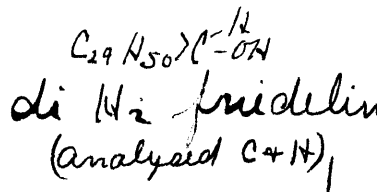 C₂₉H₅₀>C-H-OH
di H₂ friedelin
(analysed C & H)